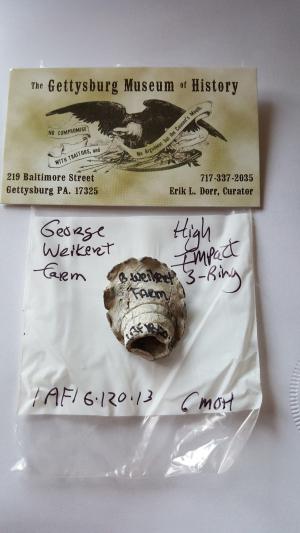 The Gettysburg Museum of History
NO COMPROMISE
WITH TRAITORS, and
No Argument but the Cannon's Mouth.
219 Baltimore Street
717-337-2035
Gettysburg PA. 17325
Erik L. Dorr, Curator
George
Weikert
Farm
High
Impact
3-Ring
Weikert
Farm
1AF16.120.13
GMOH